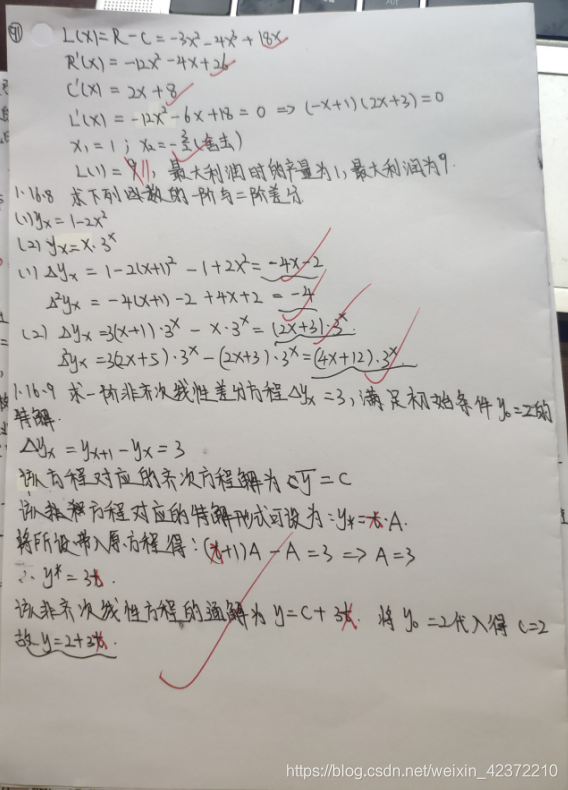 ㊶ L(x)=R-C=-3x²-4x³+18x
R'(x)=-12x²-4x+26
C'(x)=2x+8
L'(x)=-12x²-6x+18=0 => (-x+1)(2x+3)=0
x₁=1; x₂=-3/2(舍去)
L(1)=9, 最大利润时的产量为1,最大利润为9.
1.16.8 求下列函数的一阶与二阶差分
(1) yx=1-2x²
(2) yx=x·3^x
(1) Δyx=1-2(x+1)²-1+2x²=-4x-2
Δ²yx=-4(x+1)-2+4x+2=-4
(2) Δyx=3(x+1)·3^x-x·3^x=(2x+3)·3^x.
Δ²yx=3(2x+5)·3^x-(2x+3)·3^x=(4x+12)·3^x
1.16.9 求一阶非齐次线性差分方程Δyx=3,满足初始条件y₀=2的
特解.
Δyx=yx+1-yx=3
该方程对应的齐次方程解为 ȳ=C
该方程对应的特解形式可设为:y*=x·A.
将所设带入原方程得:(x+1)A-A=3 => A=3
∴ y*=3x.
该非齐次线性方程的通解为y=C+3x. 将y₀=2代入得C=2
故y=2+3x.
https://blog.csdn.net/weixin_42372210